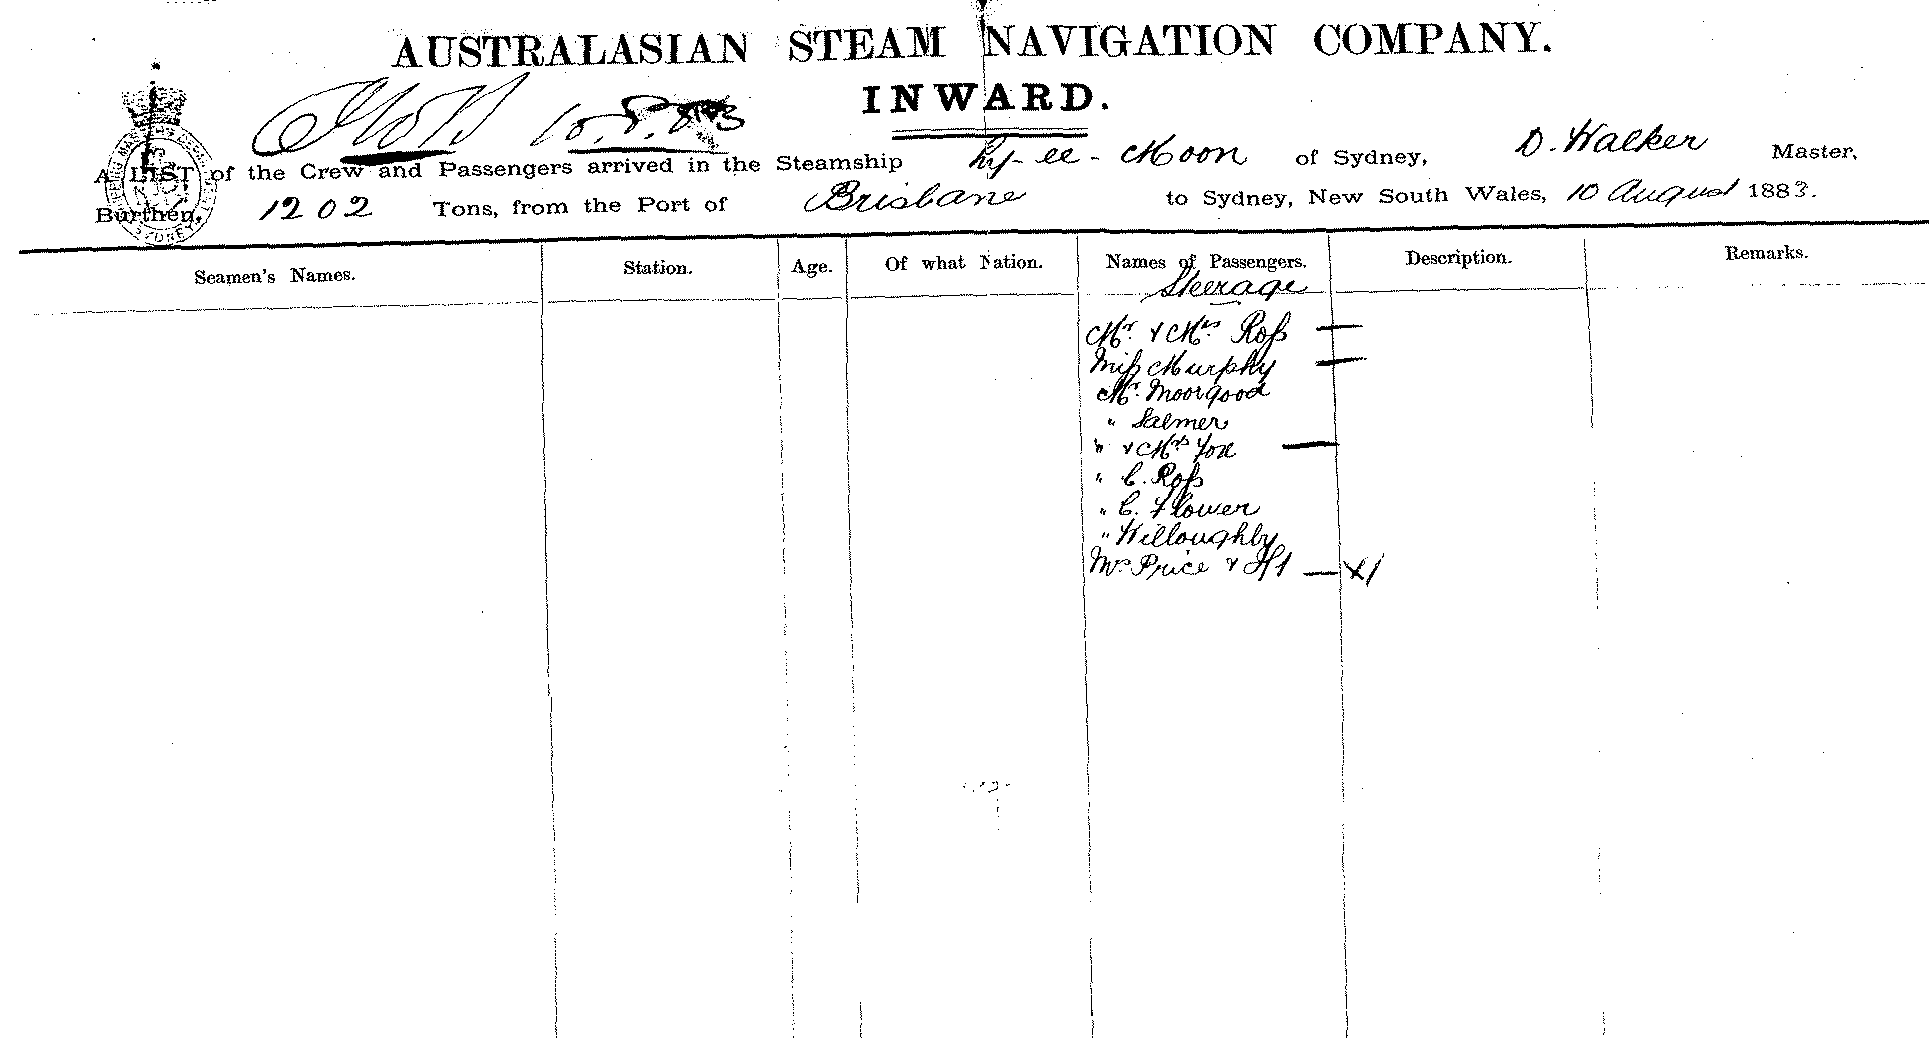 AUSTRALASIAN STEAM NAVIGATION COMPANY.
INWARD.
10.8.83
A LIST of the Crew and Passengers arrived in the Steamship Ly-ee-Moon of Sydney, D. Walker Master,
Burthen, 1202 Tons, from the Port of Brisbane to Sydney, New South Wales, 10 August 1883.
Seamen's Names. Station. Age. Of what Nation. Names of Passengers. Description. Remarks.
Steerage
Mr. & Mrs Ross —
Miss Murphy —
Mr. Moorgood
" Salmer
" & Mrs Fox —
" C. Ross
" C. Flower
" Willoughby
Mrs Price & — X1